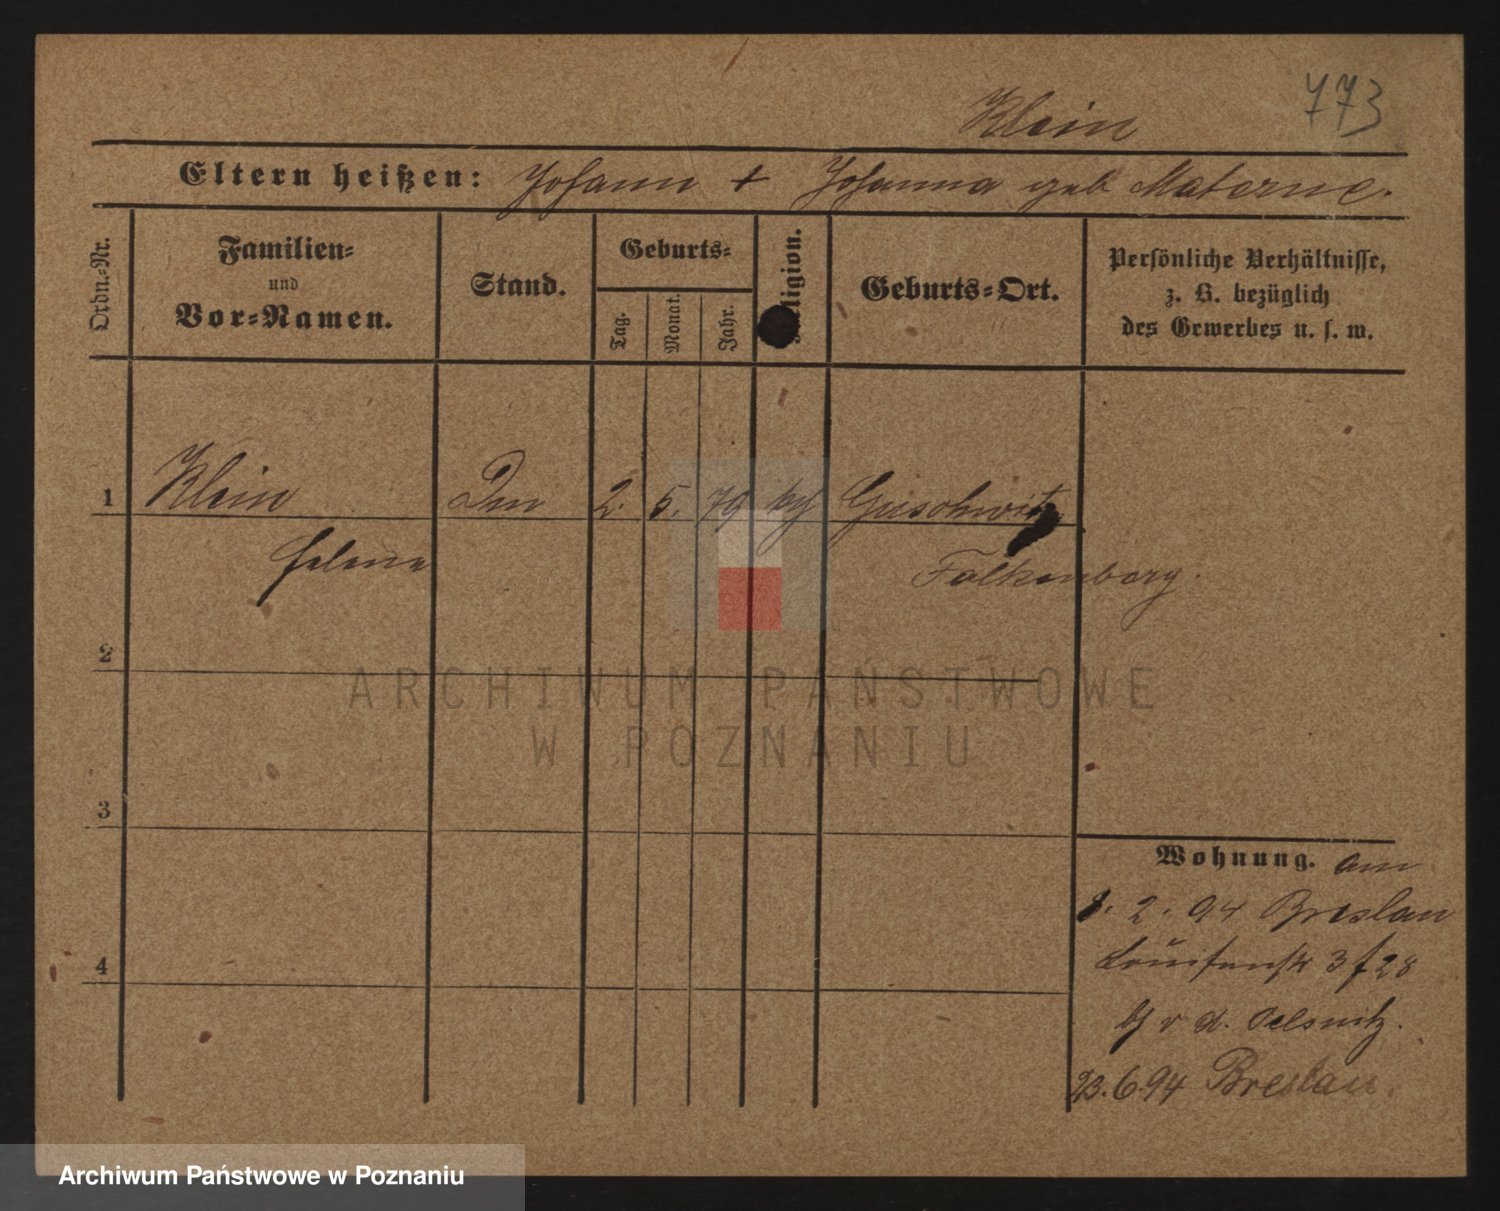 773
Klein
Eltern heißen: Johann + Johanna geb Materne.
Ordn.-Nr.
Familien-
und
Vor-Namen.
Stand.
Geburts-
Tag.
Monat.
Jahr.
Religion.
Geburts-Ort.
Persönliche Verhältnisse,
z. B. bezüglich
des Gewerbes u. s. w.
1 Klein 2. 5. 79 Guschwitz
Helene Falkenberg.
2
3
4
ARCHIWUM PAŃSTWOWE
W POZNANIU
Wohnung. am
8. 2. 94 Breslau
Louisenstr 28
v d. Oelsnitz.
23.6.94 Breslau.
Archiwum Państwowe w Poznaniu